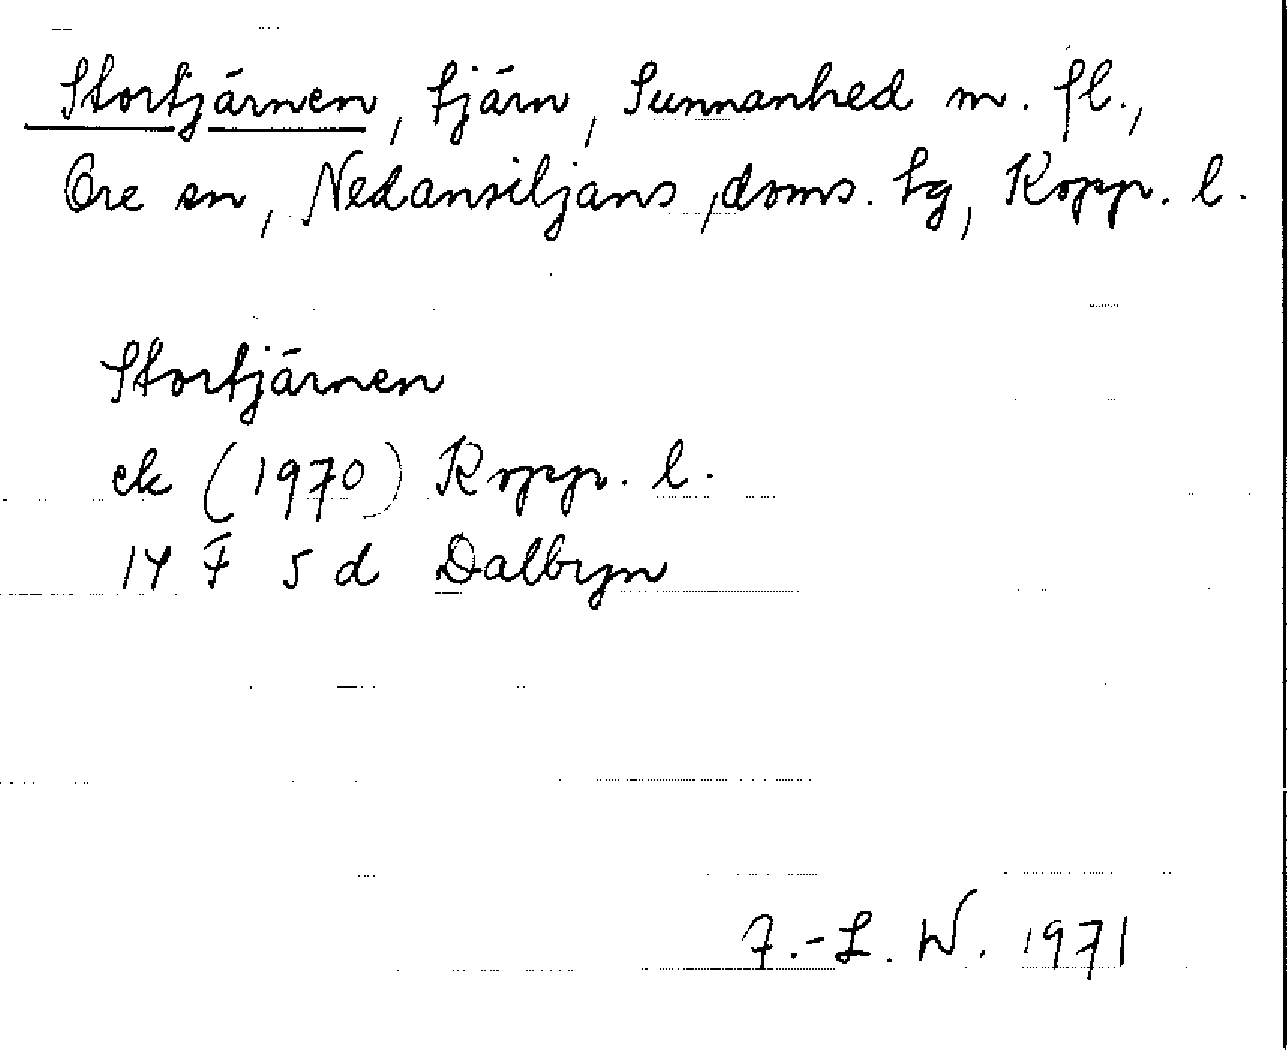 Stortjärnen, tjärn, Sunnanhed m. fl.,
Ore sn, Nedansiljans doms. tg, Kopp. l.
Stortjärnen
ek (1970) Kopp. l.
14 F 5 d Dalbyn
F.-L. W. 1971